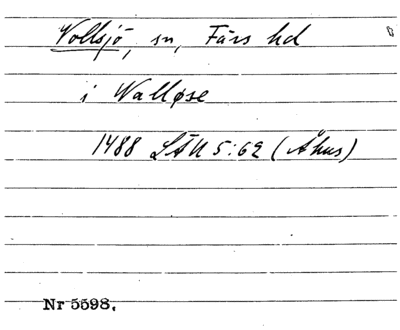 Vollsjö, sn, Färs hd
i Walløse
1488 LÄU 5:62 (Åhus)
Nr 5598.